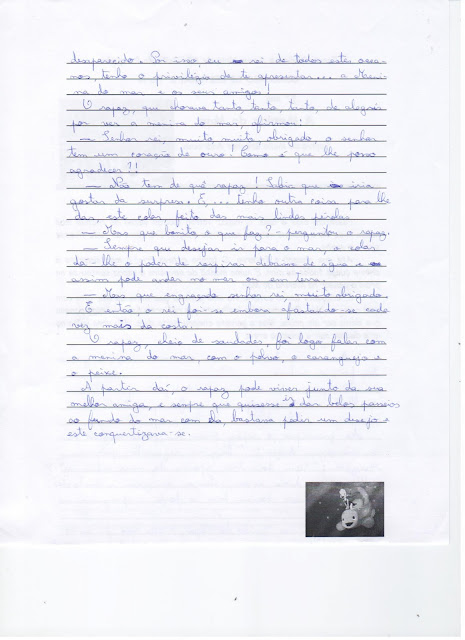 desaparecido. Por isso, eu rei de todos estes ocea-
nos, tenho o privilégio de te apresentar... a Meni-
na do mar e os seus amigos!
O rapaz, que chorava tanto, tanto, tanto, de alegria
por ver a menina do mar, afirmou:
— Senhor rei, muito, muito obrigado, o senhor
tem um coração de ouro! Como é que lhe posso
agradecer?!
— Não tem de quê rapaz! Sabia que iria
gostar da surpresa. E,... tenho outra coisa para lhe
dar, este colar feito das mais lindas pérolas
— Mas que bonito o que faz? - perguntou o rapaz.
— Sempre que desejar ir para o mar, o colar
dá-lhe o poder de respirar debaixo de água e
assim pode andar no mar ou em terra.
— Mas que engraçado senhor rei, muito obrigado.
E então, o rei foi-se embora afastando-se cada
vez mais da costa.
O rapaz, cheio de saudades, foi logo falar com
a menina do mar, com o polvo, o caranguejo e
o peixe.
A partir daí, o rapaz pode viver junto da sua
melhor amiga, e sempre que quisesse ir dar belos passeios
ao fundo do mar com ela, bastava pedir um desejo e
este conquertizava-se.